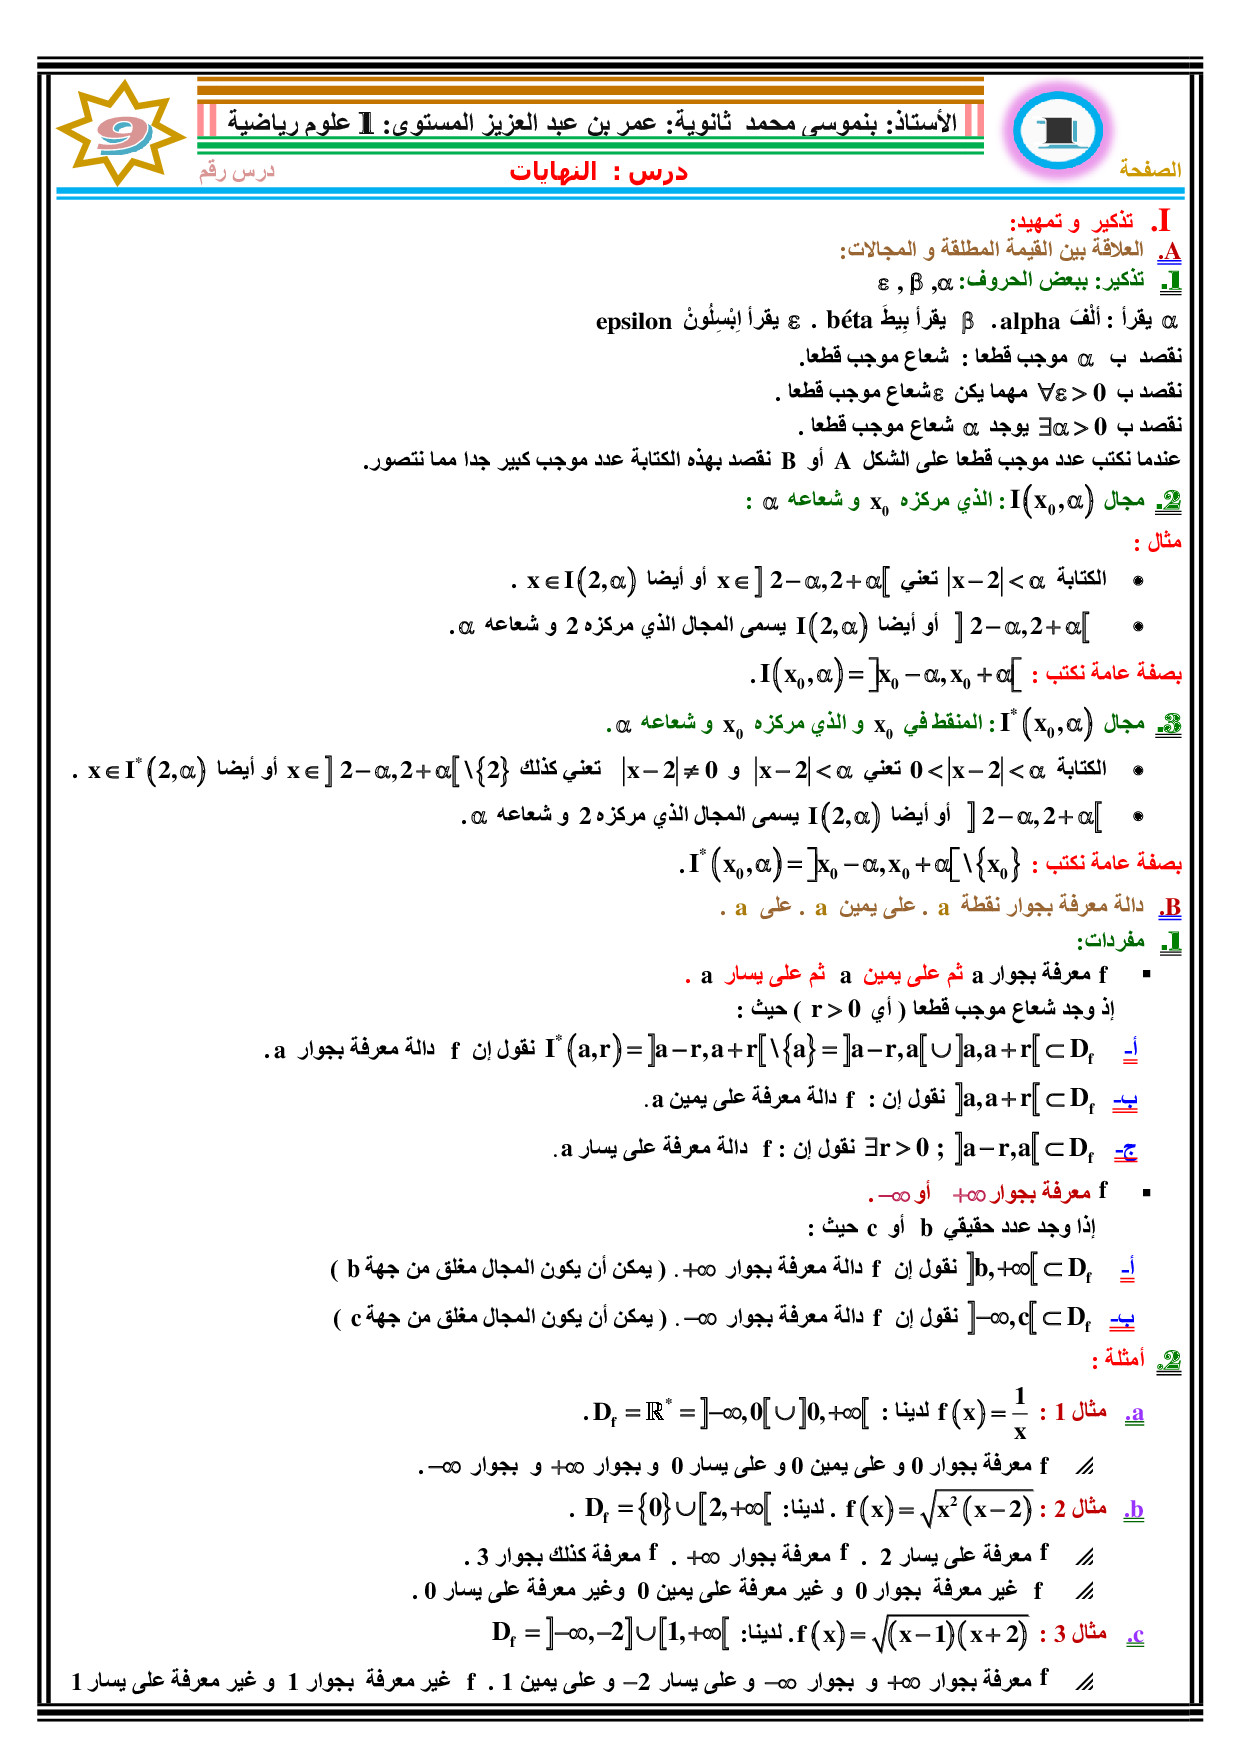 الأستاذ: بنموسى محمد ثانوية: عمر بن عبد العزيز المستوى: 1 علوم رياضية
9
1
الصفحة
درس : النهايات
درس رقم
I. تذكير و تمهيد:
A. العلاقة بين القيمة المطلقة و المجالات:
1. تذكير: ببعض الحروف: α, β , ε
α يقرأ : ألْفَ alpha. β يقرأ بِيطَ béta . ε يقرأ اِبْسِلُونْ epsilon
نقصد ب α موجب قطعا : شعاع موجب قطعا.
نقصد ب ∀ε > 0 مهما يكن ε شعاع موجب قطعا .
نقصد ب ∃α > 0 يوجد α شعاع موجب قطعا .
عندما نكتب عدد موجب قطعا على الشكل A أو B نقصد بهذه الكتابة عدد موجب كبير جدا مما نتصور.
2. مجال I(x₀,α) : الذي مركزه x₀ و شعاعه α :
مثال :
• الكتابة |x−2| < α تعني x ∈ ]2−α,2+α[ أو أيضا x ∈ I(2,α) .
• ]2−α,2+α[ أو أيضا I(2,α) يسمى المجال الذي مركزه 2 و شعاعه α.
بصفة عامة نكتب : I(x₀,α) = ]x₀−α,x₀+α[ .
3. مجال I*(x₀,α) : المنقط في x₀ و الذي مركزه x₀ و شعاعه α.
• الكتابة 0 < |x−2| < α تعني |x−2| < α و |x−2| ≠ 0 تعني كذلك x ∈ ]2−α,2+α[ \ {2} أو أيضا x ∈ I*(2,α) .
• ]2−α,2+α[ أو أيضا I(2,α) يسمى المجال الذي مركزه 2 و شعاعه α.
بصفة عامة نكتب : I*(x₀,α) = ]x₀−α,x₀+α[ \ {x₀} .
B. دالة معرفة بجوار نقطة a . على يمين a . على a .
1. مفردات:
▪ f معرفة بجوار a ثم على يمين a ثم على يسار a .
إذ وجد شعاع موجب قطعا ( أي r > 0 ) حيث :
أ- I*(a,r) = ]a−r,a+r[ \ {a} = ]a−r,a[ ∪ ]a,a+r[ ⊂ D_f نقول إن f دالة معرفة بجوار a.
ب- ]a,a+r[ ⊂ D_f نقول إن : f دالة معرفة على يمين a.
ج- ∃r > 0 ; ]a−r,a[ ⊂ D_f نقول إن : f دالة معرفة على يسار a.
▪ f معرفة بجوار +∞ أو −∞ .
إذا وجد عدد حقيقي b أو c حيث :
أ- ]b,+∞[ ⊂ D_f نقول إن f دالة معرفة بجوار +∞ . ( يمكن أن يكون المجال مغلق من جهة b )
ب- ]−∞,c[ ⊂ D_f نقول إن f دالة معرفة بجوار −∞ . ( يمكن أن يكون المجال مغلق من جهة c )
2. أمثلة :
a. مثال 1 : f(x) = 1/x لدينا : D_f = ℝ* = ]−∞,0[ ∪ ]0,+∞[ .
f معرفة بجوار 0 و على يمين 0 و على يسار 0 و بجوار +∞ و بجوار −∞ .
b. مثال 2 : f(x) = √(x²(x−2)) . لدينا: D_f = {0} ∪ [2,+∞[ .
f معرفة على يسار 2 . f معرفة بجوار +∞ . f معرفة كذلك بجوار 3 .
f غير معرفة بجوار 0 و غير معرفة على يمين 0 وغير معرفة على يسار 0 .
c. مثال 3 : f(x) = √((x−1)(x+2)) . لدينا: D_f = ]−∞,−2] ∪ [1,+∞[
f معرفة بجوار +∞ و بجوار −∞ و على يسار −2 و على يمين 1 . f غير معرفة بجوار 1 و غير معرفة على يسار 1